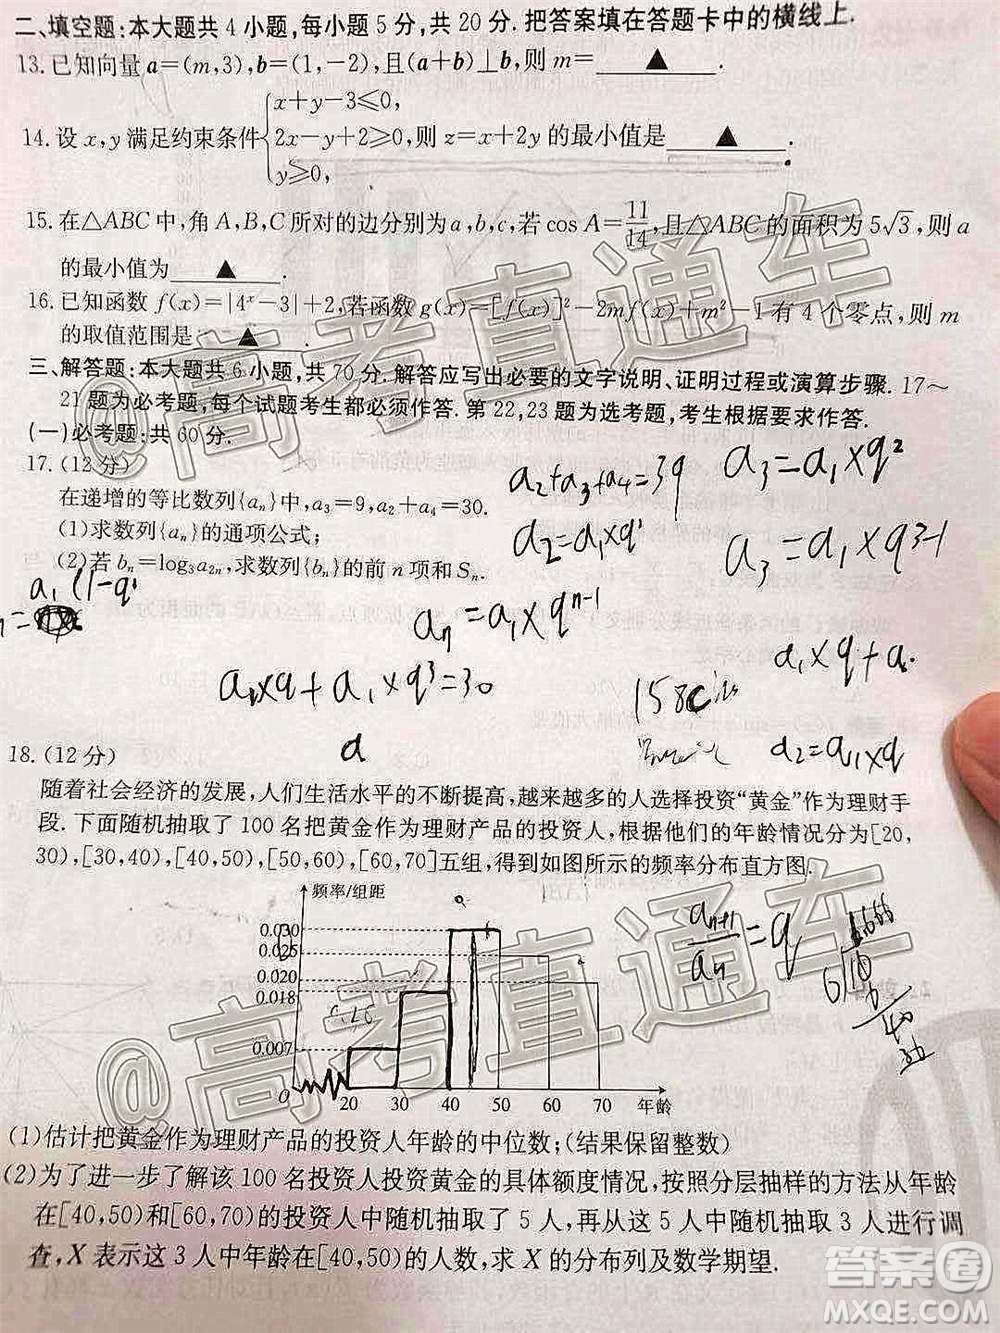 二、填空题:本大题共4小题,每小题5分,共20分.把答案填在答题卡中的横线上.
13.已知向量a=(m,3),b=(1,-2),且(a+b)⊥b,则m=▲.
14.设x,y满足约束条件{x+y-3≤0, 2x-y+2≥0, y≥0, 则z=x+2y的最小值是▲.
15.在△ABC中,角A,B,C所对的边分别为a,b,c,若cos A=11/14,且△ABC的面积为5√3,则a
的最小值为▲.
16.已知函数f(x)=|4ˣ-3|+2,若函数g(x)=[f(x)]²-2mf(x)+m²-1有4个零点,则m
的取值范围是▲.
三、解答题:本大题共6小题,共70分.解答应写出必要的文字说明、证明过程或演算步骤.17～
21题为必考题,每个试题考生都必须作答.第22,23题为选考题,考生根据要求作答.
(一)必考题:共60分.
17.(12分)
在递增的等比数列{aₙ}中,a₃=9,a₂+a₄=30.
(1)求数列{aₙ}的通项公式;
(2)若bₙ=log₃a₂ₙ,求数列{bₙ}的前n项和Sₙ.
a₂+a₃+a₄=39
a₃=a₁×q²
a₂=a₁×q¹
a₃=a₁×q³⁻¹
a₁(1-q
aₙ=a₁×qⁿ⁻¹
a₁×q+a₁×q³=30
a₁×q+a
158cm
a
a₂=a₁×q
18.(12分)
随着社会经济的发展,人们生活水平的不断提高,越来越多的人选择投资“黄金”作为理财手
段.下面随机抽取了100名把黄金作为理财产品的投资人,根据他们的年龄情况分为[20,
30),[30,40),[40,50),[50,60),[60,70]五组,得到如图所示的频率分布直方图.
频率/组距
0.030
0.025
0.020
0.018
0.007
O 20 30 40 50 60 70 年龄
aₙ₊₁/aₙ=q
(1)估计把黄金作为理财产品的投资人年龄的中位数;(结果保留整数)
(2)为了进一步了解该100名投资人投资黄金的具体额度情况,按照分层抽样的方法从年龄
在[40,50)和[60,70)的投资人中随机抽取了5人,再从这5人中随机抽取3人进行调
查,X表示这3人中年龄在[40,50)的人数,求X的分布列及数学期望.
@高考直通车
@高考直通车
答案圈
MXQE.COM